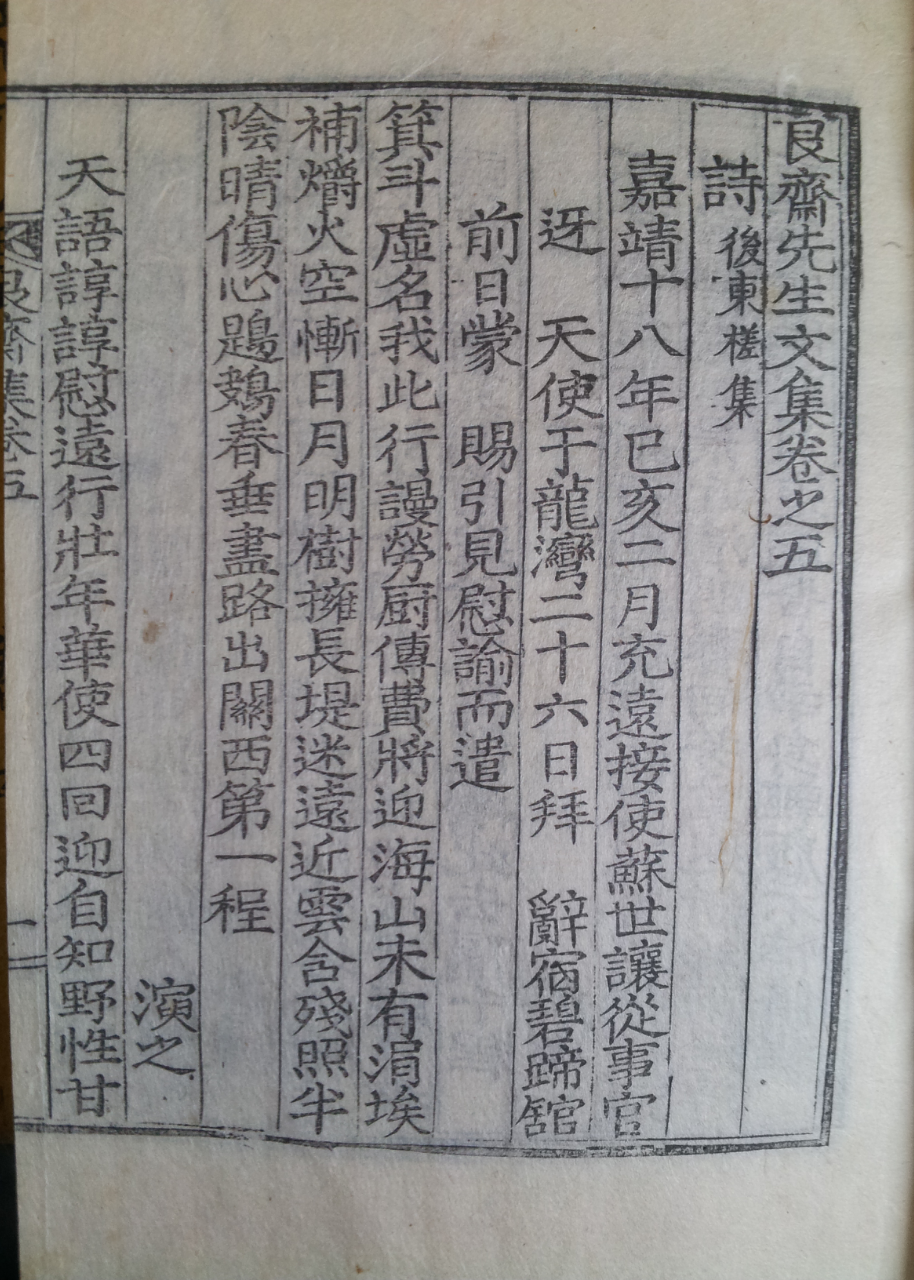 艮齋先生文集卷之五
詩後東槎集
嘉靖十八年已亥二月充遠接使蘇世讓從事官
迓 天使于龍灣二十六日拜 辭宿碧蹄舘
前日蒙 賜引見慰諭而遣
箕斗虛名我此行謾勞厨傳費將迎海山未有涓埃
補爝火空慚日月明樹擁長堤迷遠近雲含殘照半
陰晴傷心鶗鴂春垂盡路出關西第一程
演之
天語諄諄慰遠行壯年華使四回迎自知野性甘
艮齋集卷五
一